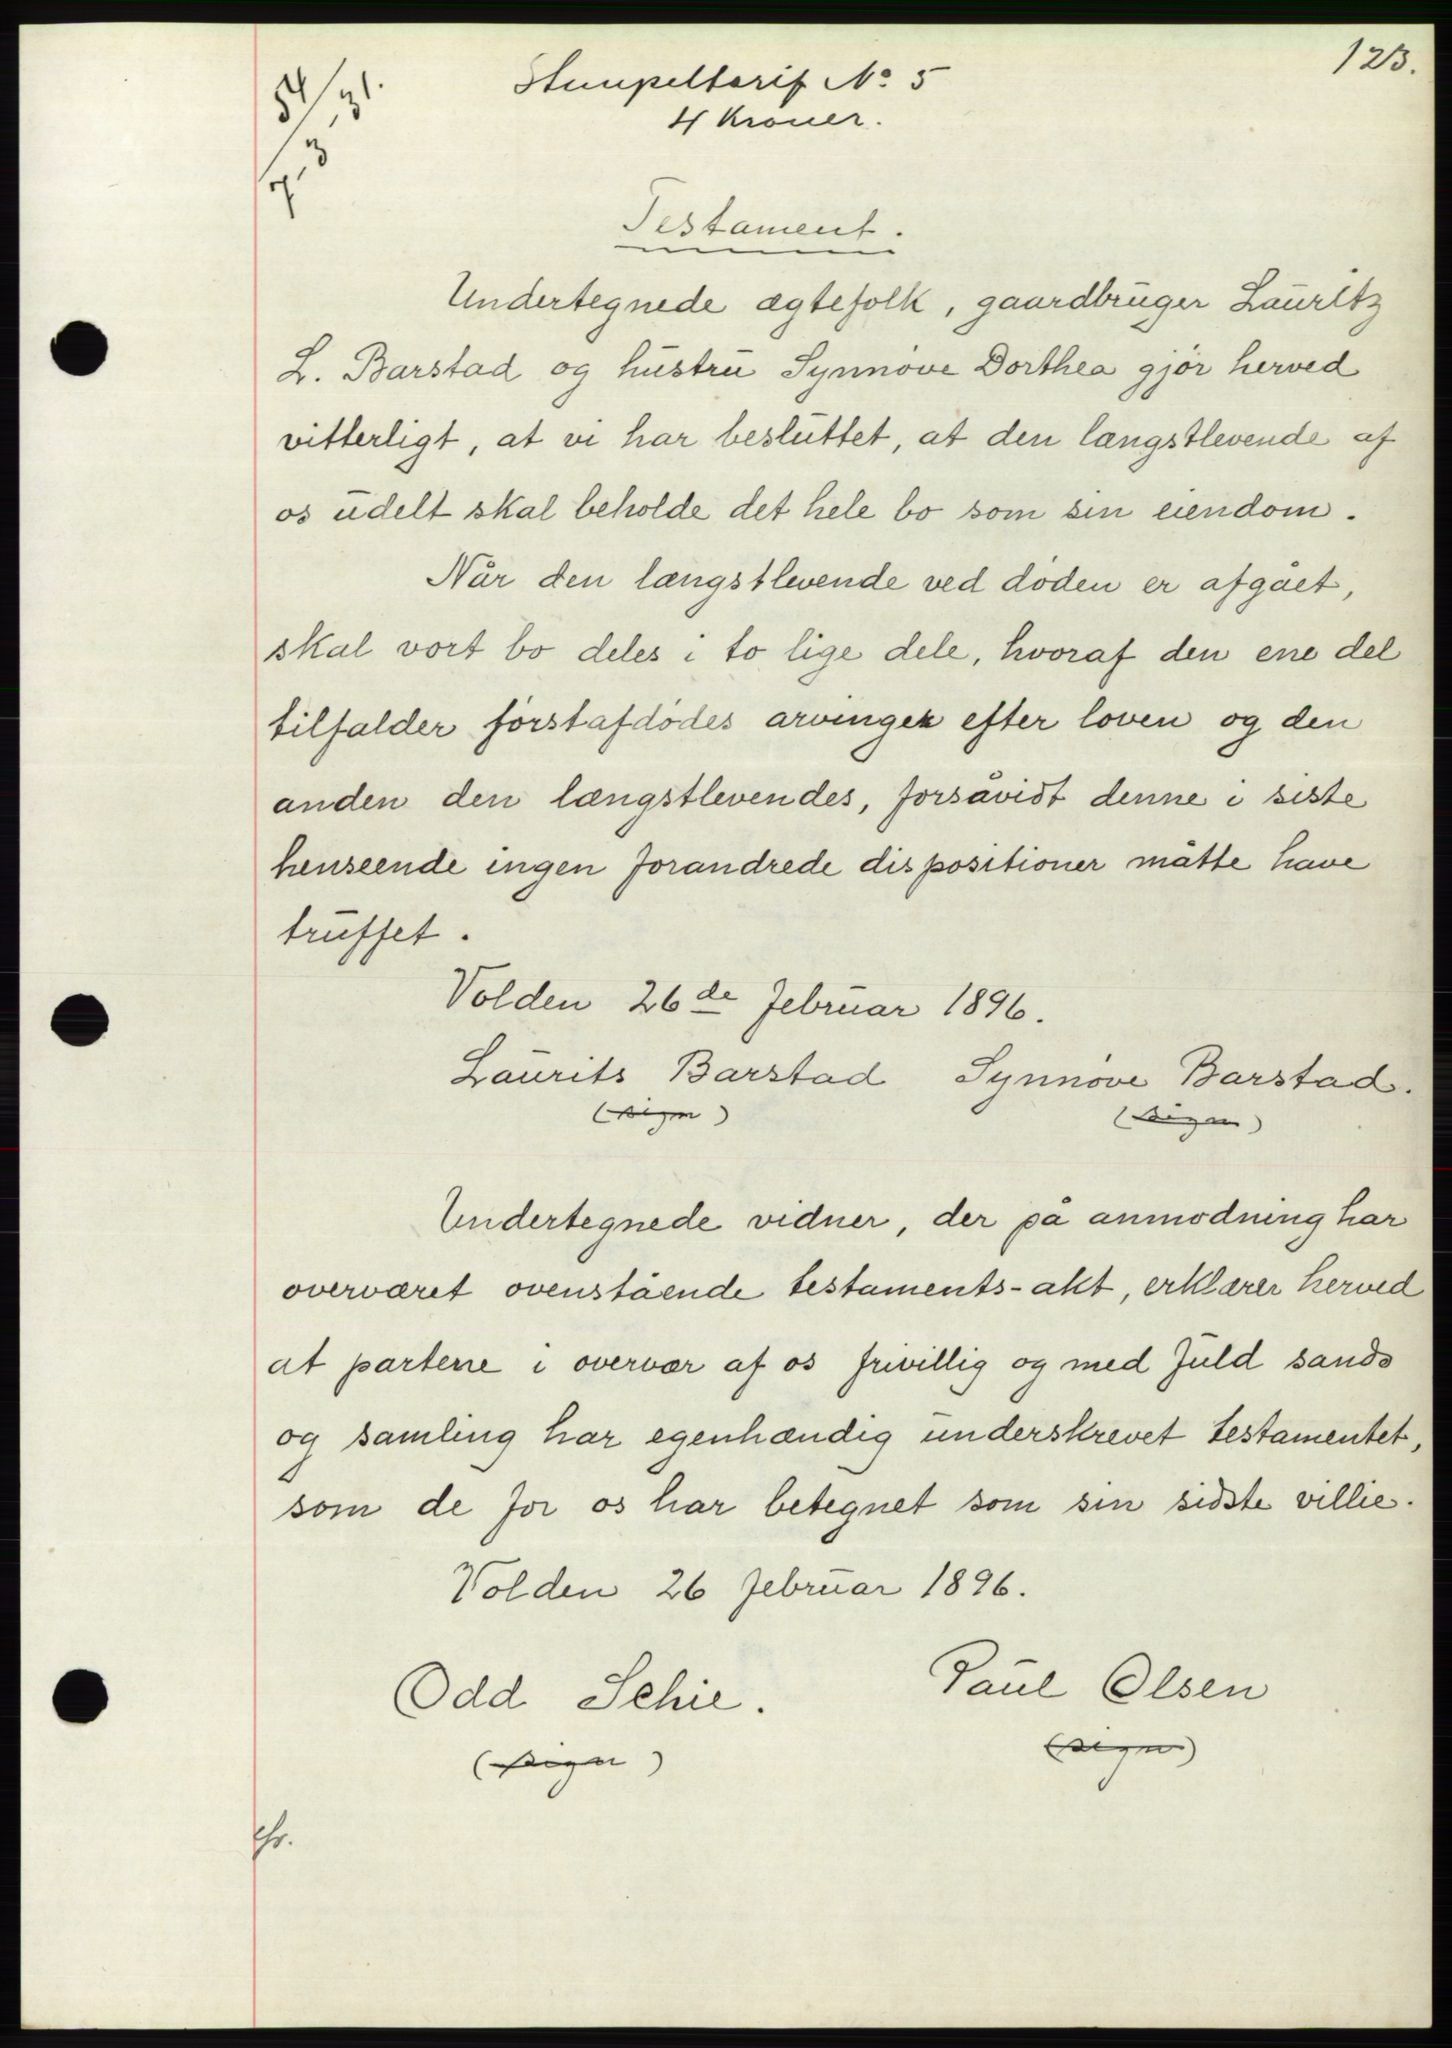 123.
54/31.
7/3
Stempeltarif No 5
4 Kroner.
Testament.
Undertegnede ægtefolk, gaardbruger Lauritz
L. Barstad og hustru Synnöve Dorthea gjör herved
vitterligt, at vi har besluttet, at den længstlevende af
os udelt skal beholde det hele bo som sin eiendom.
Når den længstlevende ved döden er afgået,
skal vort bo deles i to lige dele, hvoraf den ene del
tilfalder förstafdödes arvinger efter loven og den
anden den længstlevendes, forsåvidt denne i siste
henseende ingen forandrede dispositioner måtte have
truffet.
Volden 26de februar 1896.
Laurits Barstad Synnöve Barstad.
(sign) (sign)
Undertegnede vidner, der på anmodning har
overværet ovenstående testaments-akt, erklærer herved
at partene i overvær af os frivillig og med fuld sands
og samling har egenhændig underskrevet testamentet,
som de for os har betegnet som sin sidste villie.
Volden 26 februar 1896.
Odd Schie. Paul Olsen
(sign) (sign)